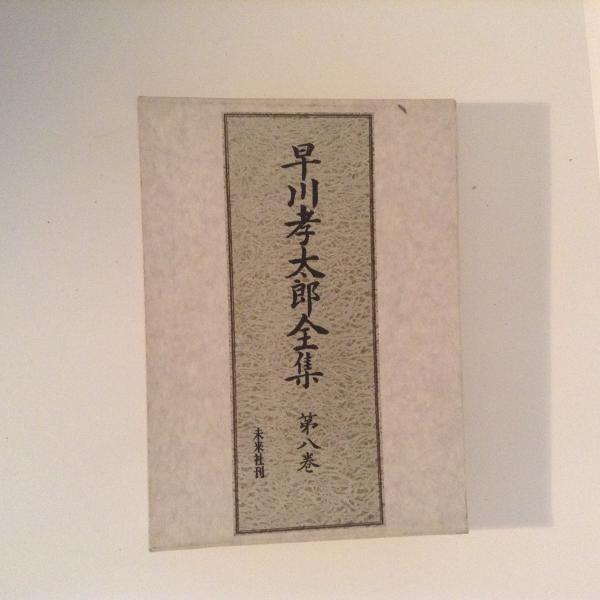 早川孝太郎全集
第八巻
未来社刊